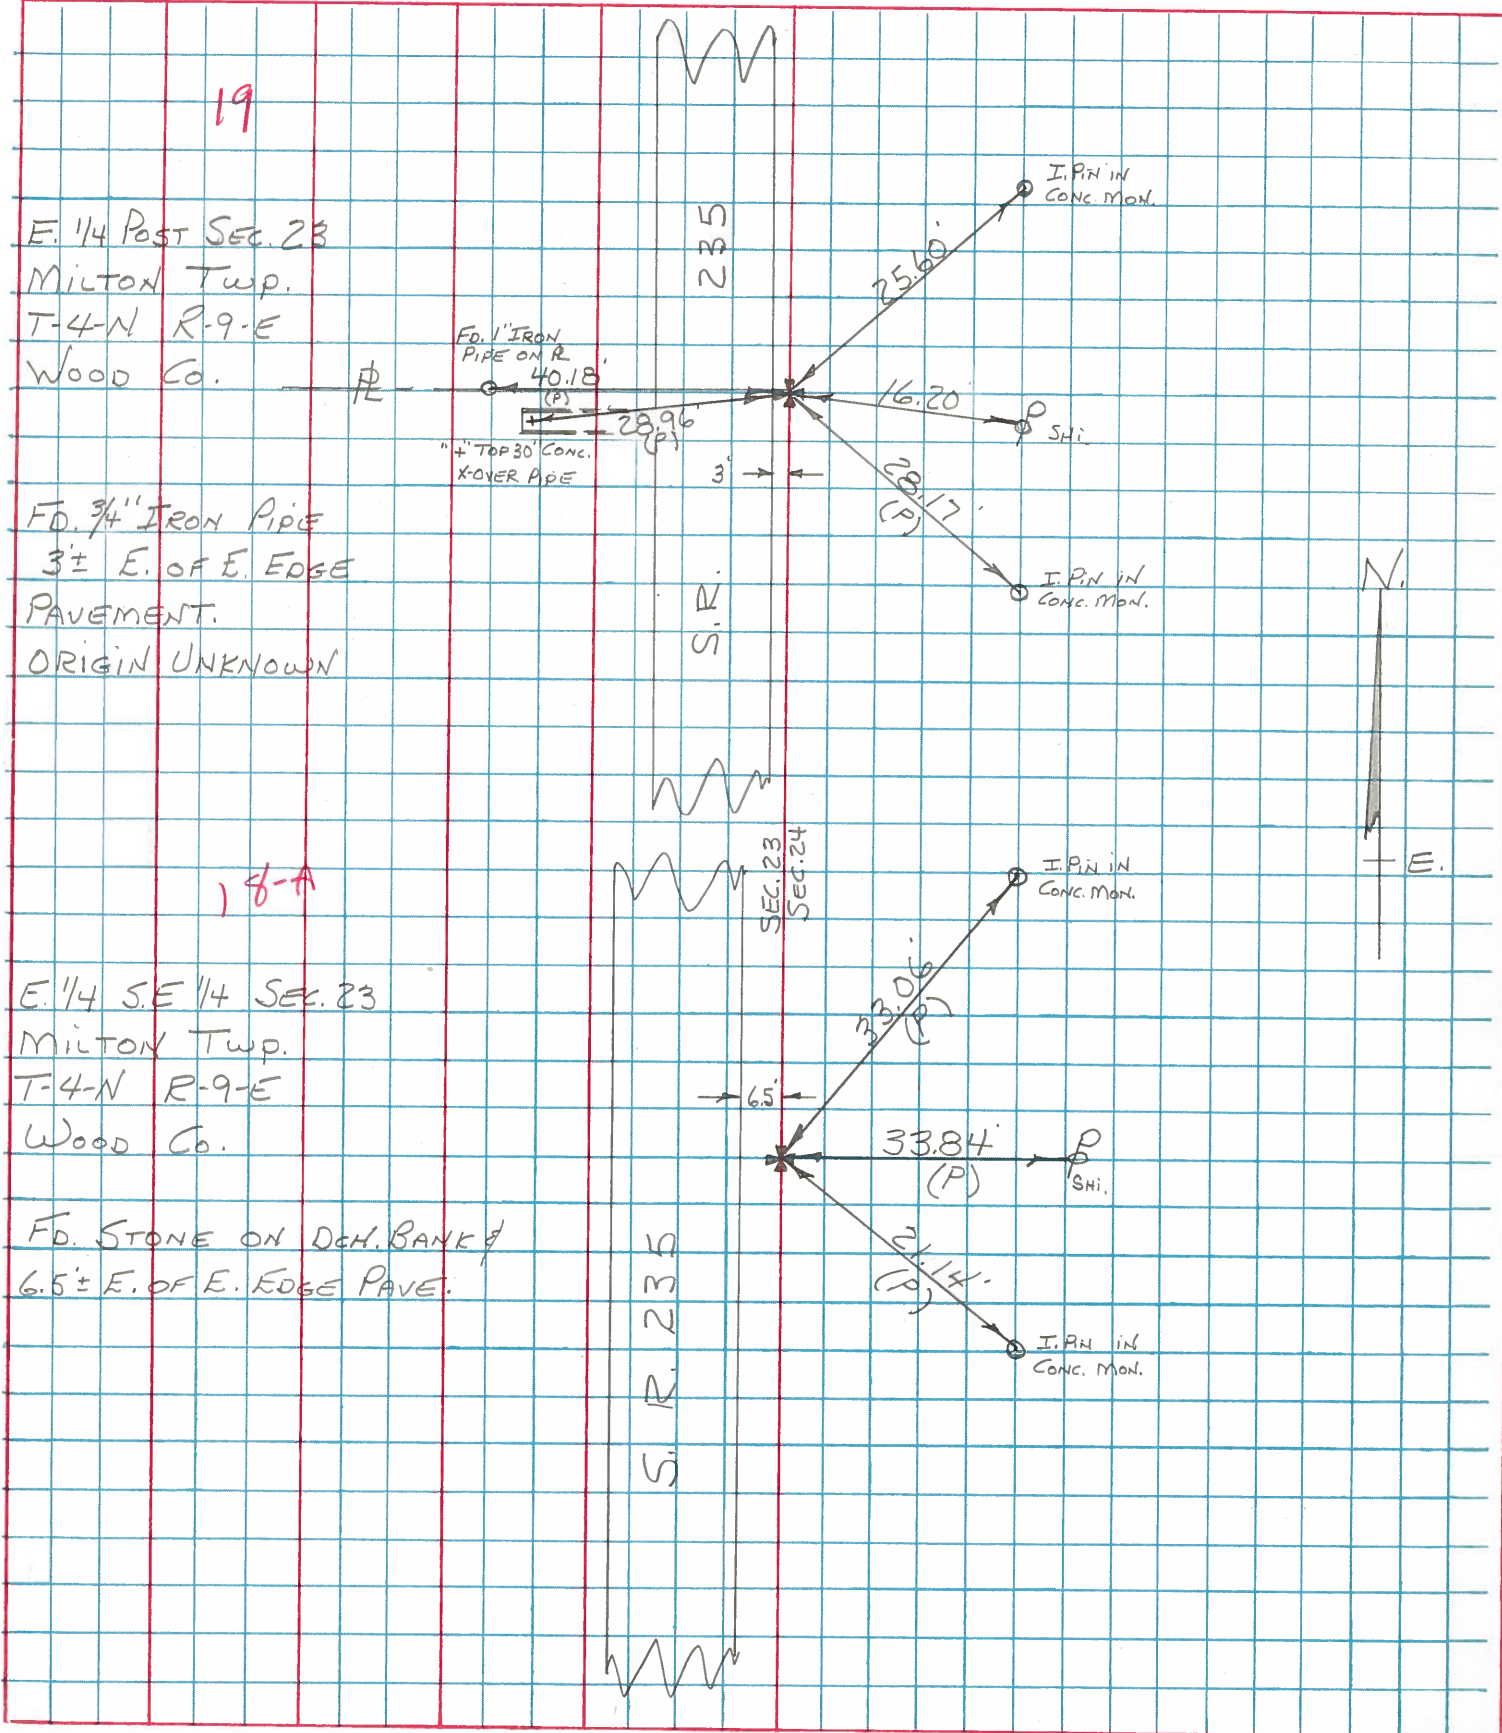 19
E. 1/4 POST SEC. 23
MILTON TWP.
T-4-N R-9-E
WOOD CO.
FD. 3/4" IRON PIPE
3'± E. OF E. EDGE
PAVEMENT.
ORIGIN UNKNOWN
PL
FD. 1" IRON
PIPE ON PL
40.18'
(P)
28.96'
(P)
"+" TOP 30" CONC.
X-OVER PIPE
3'
S.R. 235
25.60'
I. PIN IN
CONC. MON.
16.20'
SHI.
28.17'
(P)
I. PIN IN
CONC. MON.
N.
E.
SEC. 23
SEC. 24
18-A
E. 1/4 S.E 1/4 SEC. 23
MILTON TWP.
T-4-N R-9-E
WOOD CO.
FD. STONE ON DCH. BANK &
6.5'± E. OF E. EDGE PAVE.
S. R. 235
6.5'
33.06'
(P)
I. PIN IN
CONC. MON.
33.84'
(P)
SHI.
21.14'
(P)
I. PIN IN
CONC. MON.